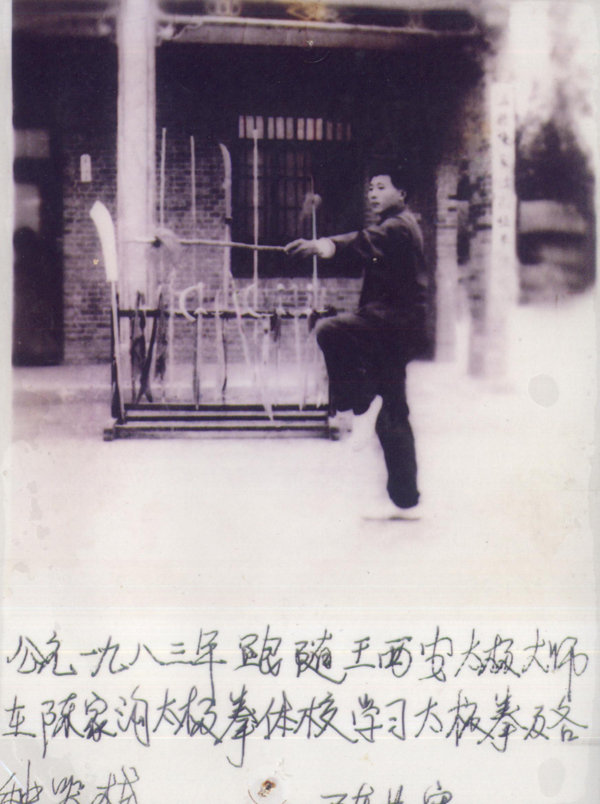 公元一九八三年跟随王西安太极大师
在陈家沟太极拳体校学习太极拳及各
种器械